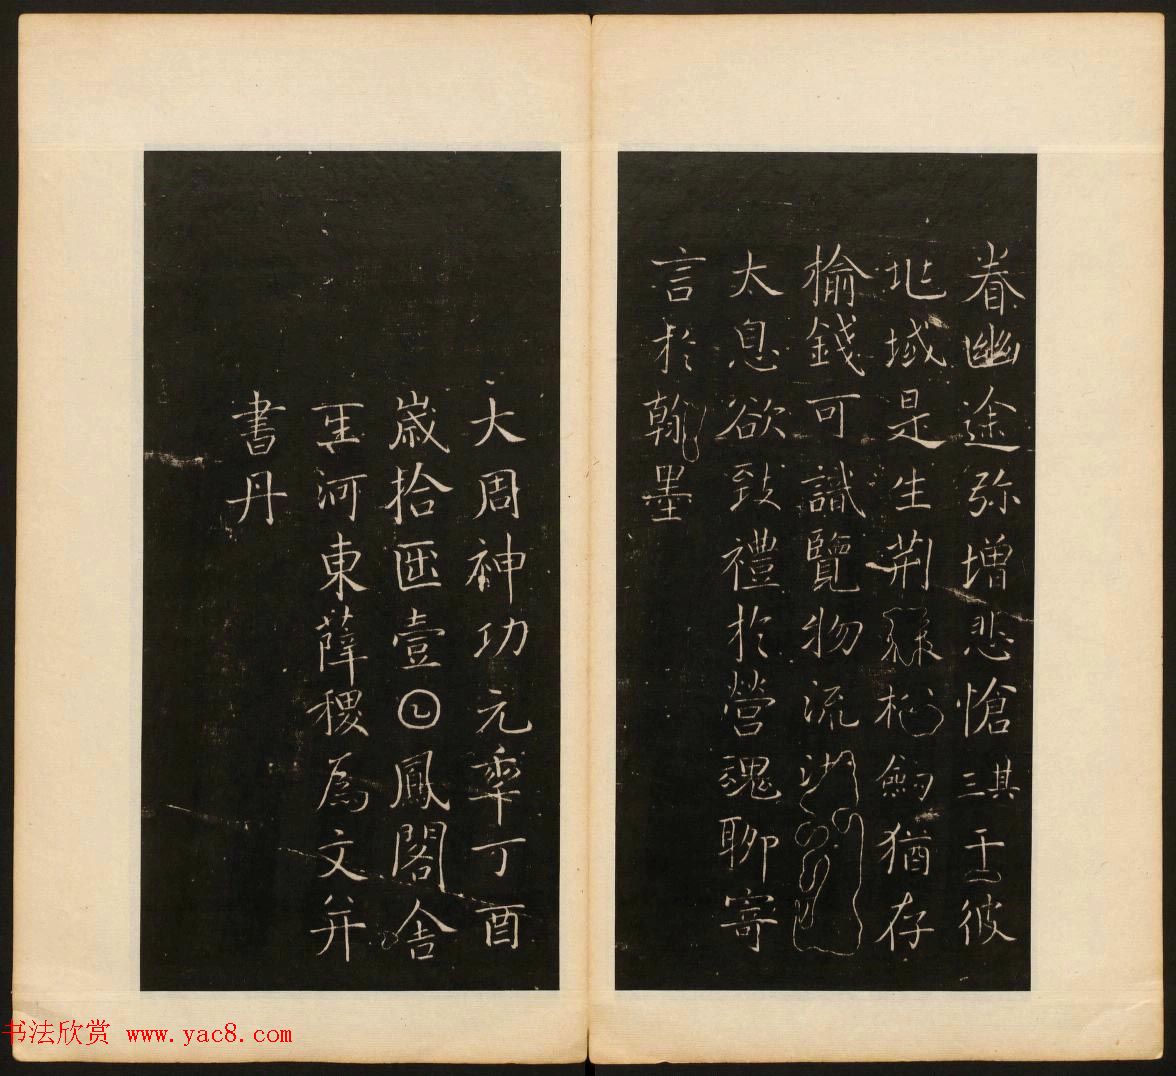 眷幽途弥增悲愴其三彼
兆域是生荆棘劍猶存
榆錢可識覽物流
太息欲致禮於營魂聊寄
言於翰墨
大周神功元𠡦丁酉
歲拾𠥱壹𡆠鳳閣舍
𤯔河東薛稷為文并
書丹
书法欣赏 www.yac8.com